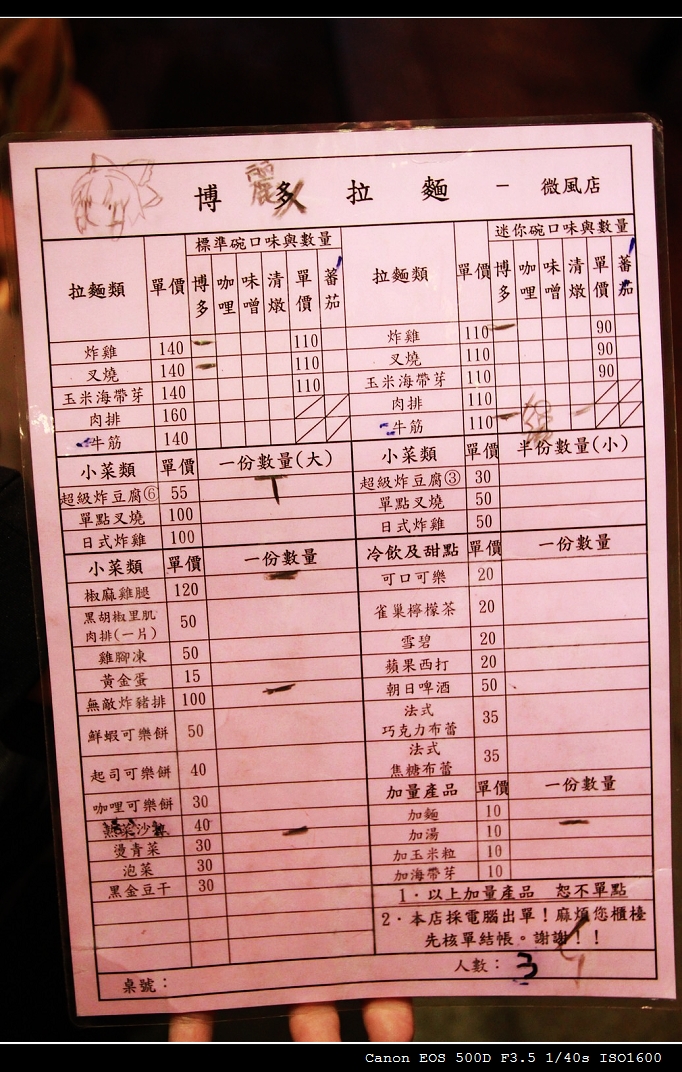 博多拉麵 － 微風店
麗
拉麵類 單價 標準碗口味與數量
博多 咖哩 味噌 清燉 單價 蕃茄
炸雞 140 110
叉燒 140 110
玉米海帶芽 140 110
肉排 160
牛筋 140
拉麵類 單價 迷你碗口味與數量
博多 咖哩 味噌 清燉 單價 蕃茄
炸雞 110 90
叉燒 110 90
玉米海帶芽 110 90
肉排 110
牛筋 110
小菜類 單價 一份數量(大)
超級炸豆腐⑥ 55
單點叉燒 100
日式炸雞 100
小菜類 單價 半份數量(小)
超級炸豆腐③ 30
單點叉燒 50
日式炸雞 50
小菜類 單價 一份數量
椒麻雞腿 120
黑胡椒里肌
肉排(一片) 50
雞腳凍 50
黃金蛋 15
無敵炸豬排 100
鮮蝦可樂餅 50
起司可樂餅 40
咖哩可樂餅 30
40
燙青菜 30
泡菜 30
黑金豆干 30
冷飲及甜點 單價 一份數量
可口可樂 20
雀巢檸檬茶 20
雪碧 20
蘋果西打 20
朝日啤酒 50
法式
巧克力布蕾 35
法式
焦糖布蕾 35
加量產品 單價 一份數量
加麵 10
加湯 10
加玉米粒 10
加海帶芽 10
1．以上加量產品 恕不單點
2．本店採電腦出單！麻煩您櫃檯
先核單結帳。謝謝！！
桌號： 人數： 3
Canon EOS 500D F3.5 1/40s ISO1600